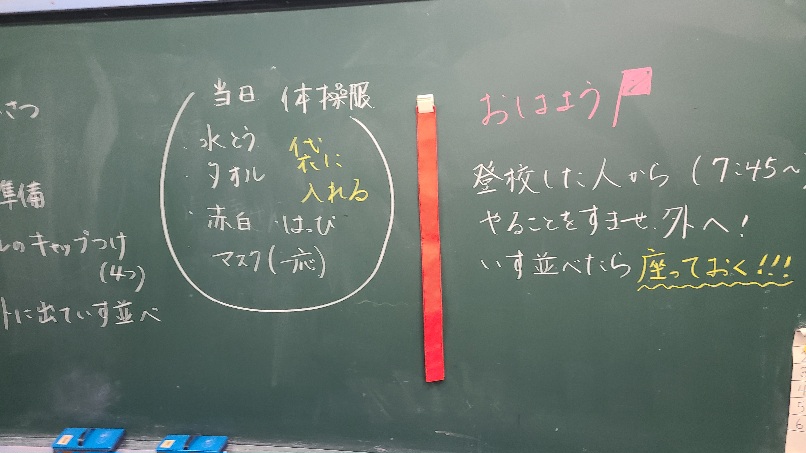 さつ
準備
のキャップつけ
(4つ)
に出ていす並べ
当日 体操服
・水とう
・タオル
袋に
入れる
・赤白 はっぴ
マスク(一応)
おはよう
登校した人から (7:45~
やることをすませ、外へ!
いす並べたら 座っておく!!!
5
6